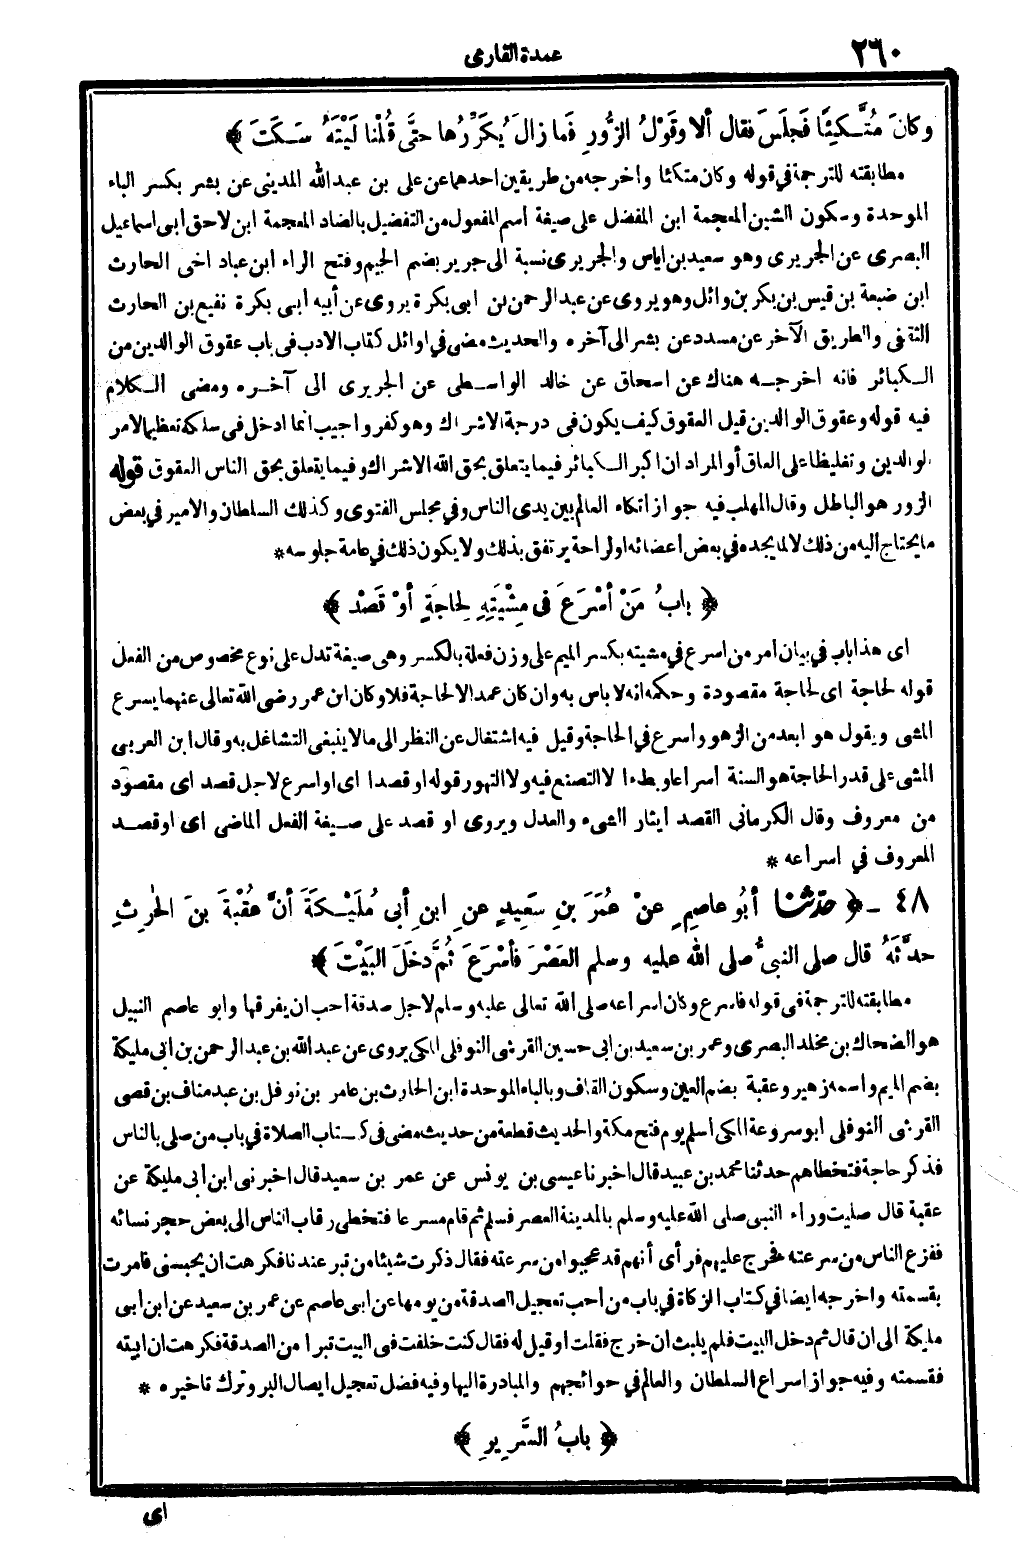 ٢٦٠
عمدة القارى
وكانَ مُتَّكِئًا فَجلَسَ فقال ألا وقَوْلُ الزُّورِ فَما زالَ يُكَرِّرُها حتَّى قُلْنا لَيْتَهُ سَكَتَ ﴾
مطابقته للترجمة في قوله وكان متكئا واخرجه من طريقين احدهما عن على بن عبد الله المدينى عن بشر بكسر الباء
الموحدة وسكون الشين المعجمة ابن المفضل على صيغة اسم المفعول من التفضيل بالضاد المعجمة ابن لاحق أبى اسماعيل
البصرى عن الجريرى وهو سعيد بن اياس والجريرى نسبة الى جرير بضم الجيم وفتح الراء ابن عباد اخى الحارث
ابن ضبعة بن قيس بن بكر بن وائل وهو يروى عن عبد الرحمن بن ابى بكرة يروى عن أبيه أبى بكرة نفيع بن الحارث
الثقفى والطريق الآخر عن مسدد عن بشر الى آخره والحديث مضى في اوائل كتاب الادب فى باب عقوق الوالدين من
الكبائر فانه اخرجه هناك عن اسحاق عن خالد الواسطى عن الجريرى الى آخره ومضى الكلام
فيه قوله وعقوق الوالدين قيل العقوق كيف يكون فى درجة الاشراك وهو كفر واجيب انما ادخل فى سلكه تعظيما لامر
الوالدين وتغليظا على العاق أو المراد ان اكبر الكبائر فيما يتعلق بحق الله الاشراك وفيما يتعلق بحق الناس العقوق قوله
الزور هو الباطل وقال المهلب فيه جواز اتكاء العالم بين يدى الناس وفي مجلس الفتوى وكذلك السلطان والامير في بعض
ما يحتاج اليه من ذلك لالم يجده في بعض أعضائه او لراحة يرتفق بذلك ولا يكون ذلك في عامة جلوسه *
﴿ بابُ مَنْ أسْرَعَ في مِشْيَتِهِ لِحاجَةٍ أوْ قَصْدٍ ﴾
اى هذا باب في بيان امر من اسرع في مشيته بكسر الميم على وزن فعلة بالكسر وهى صيغة تدل على نوع مخصوص من الفعل
قوله لحاجة اى لحاجة مقصودة وحكمه انه لا باس به وان كان عمدا لا لحاجة فلا وكان ابن عمر رضى الله تعالى عنهما يسرع
المشى ويقول هو ابعد من الزهو واسرع في الحاجة وقيل فيه اشتغال عن النظر الى ما لا ينبغى التشاغل به وقال ابن العربى
المشى على قدر الحاجة هو السنة اسراعا وبطءا لا التصنع فيه ولا التهور قوله او قصدا اى او اسرع لاجل قصد اى مقصود
من معروف وقال الكرمانى القصد ايثار الشىء والعدل ويروى او قصد على صيغة الفعل الماضى اى او قصد
المعروف في اسراعه *
٤٨ - ﴿ حدّثنا أبُو عاصِمٍ عنْ عُمَرَ بنِ سَعِيدٍ عنِ ابنِ أبى مُلَيْكَةَ أنَّ عُقْبَةَ بنَ الحٰرِثِ
حدَّثَهُ قال صلى النبىُّ صلى الله عليه وسلم العَصْرَ فأسْرَعَ ثُمَّ دَخَلَ البَيْتَ ﴾
مطابقته للترجمة فى قوله فاسرع وكان اسراعه صلى الله تعالى عليه وسلم لاجل صدقة احب ان يفرقها وابو عاصم النبيل
هو الضحاك بن مخلد البصرى وعمر بن سعيد بن ابى حسين القرشى النوفلى المكى يروى عن عبد الله بن عبد الرحمن بن أبى مليكة
بضم الميم واسمه زهير وعقبة بضم العين وسكون القاف وبالباء الموحدة ابن الحارث بن عامر بن نوفل بن عبد مناف بن قصى
القرشى النوفلى ابو سروعة المكى اسلم يوم فتح مكة والحديث قطعة من حديث مضى فى كتاب الصلاة في باب من صلى بالناس
فذكر حاجة فتخطاهم حدثنا محمد بن عبيد قال اخبرنا عيسى بن يونس عن عمر بن سعيد قال اخبرنى ابن ابى مليكة عن
عقبة قال صليت وراء النبى صلى الله عليه وسلم بالمدينة العصر فسلم ثم قام مسرعا فتخطى رقاب الناس الى بعض حجر نسائه
ففزع الناس من سرعته فخرج عليهم فرأى أنهم قد عجبوا من سرعته فقال ذكرت شيئا من تبر عندنا فكرهت ان يحبسنى فامرت
بقسمته واخرجه ايضا في كتاب الزكاة في باب من أحب تعجيل الصدقة من يومها عن ابى عاصم عن عمر بن سعيد عن ابن أبى
مليكة الى ان قال ثم دخل البيت فلم يلبث ان خرج فقلت او قيل له فقال كنت خلفت فى البيت تبرا من الصدقة فكرهت ان ابيته
فقسمته وفيه جواز اسراع السلطان والعالم في حوائجهم والمبادرة اليها وفيه فضل تعجيل ايصال البر وترك تاخيره *
﴿ بابُ السَّرِيرِ ﴾
اى